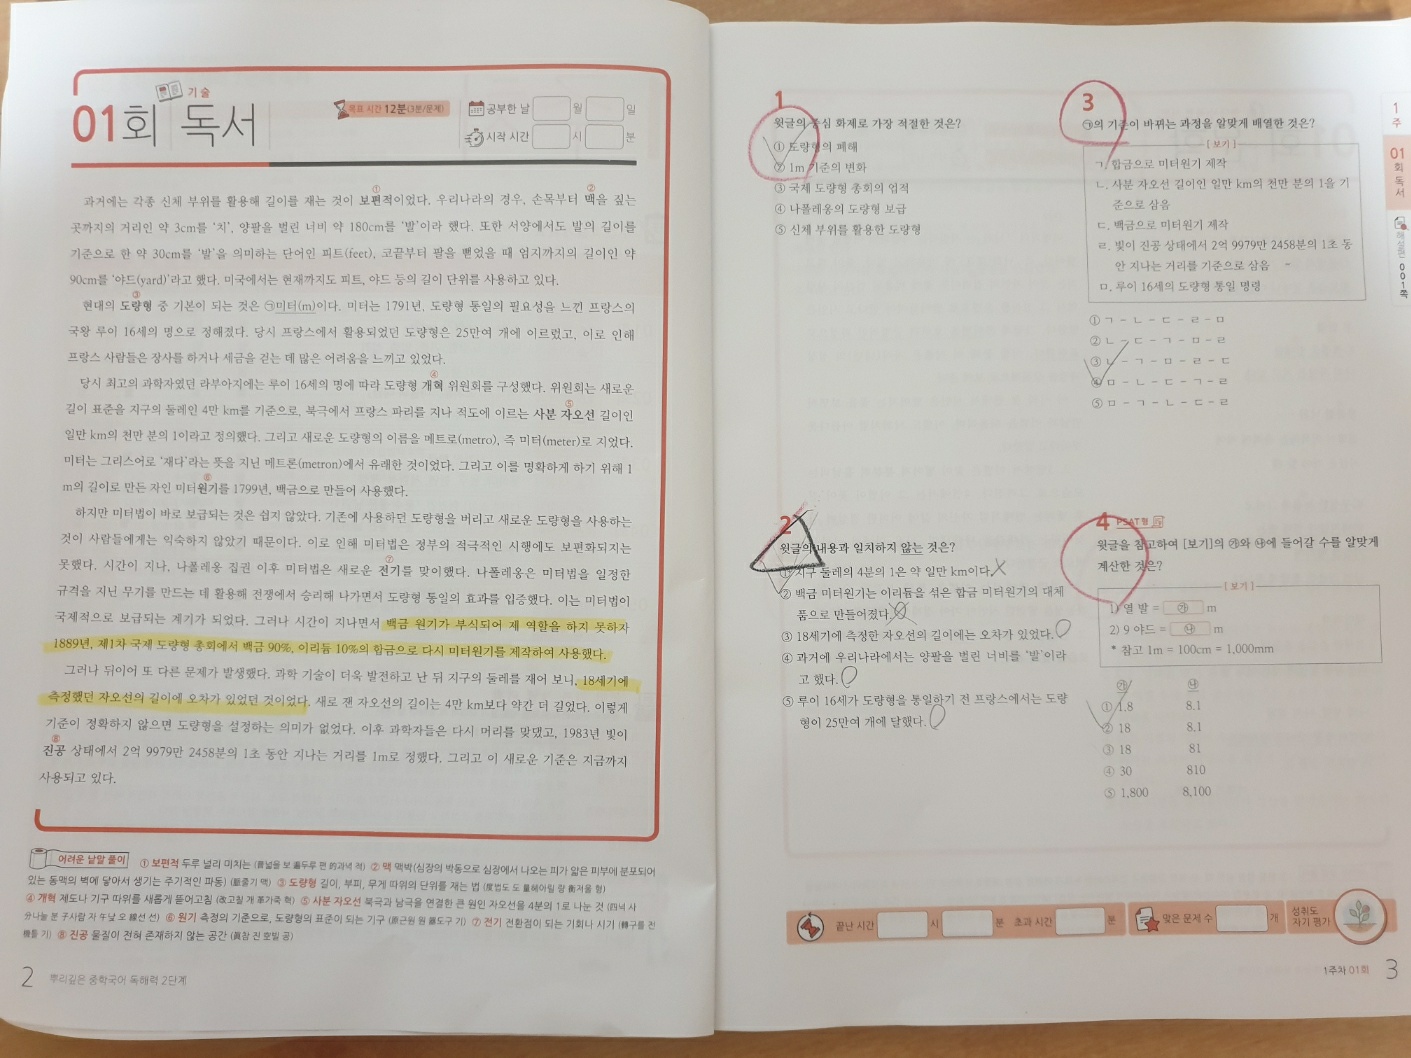 기술
01회 독서
목표 시간 12분(3분/문제)
공부한 날 월 일
시작 시간 시 분
① ②
과거에는 각종 신체 부위를 활용해 길이를 재는 것이 보편적이었다. 우리나라의 경우, 손목부터 맥을 짚는
곳까지의 거리인 약 3cm를 ‘치’, 양팔을 벌린 너비 약 180cm를 ‘발’이라 했다. 또한 서양에서도 발의 길이를
기준으로 한 약 30cm를 ‘발’을 의미하는 단어인 피트(feet), 코끝부터 팔을 뻗었을 때 엄지까지의 길이인 약
90cm를 ‘야드(yard)’라고 했다. 미국에서는 현재까지도 피트, 야드 등의 길이 단위를 사용하고 있다.
③
현대의 도량형 중 기본이 되는 것은 ㉠미터(m)이다. 미터는 1791년, 도량형 통일의 필요성을 느낀 프랑스의
국왕 루이 16세의 명으로 정해졌다. 당시 프랑스에서 활용되었던 도량형은 25만여 개에 이르렀고, 이로 인해
프랑스 사람들은 장사를 하거나 세금을 걷는 데 많은 어려움을 느끼고 있었다.
④
당시 최고의 과학자였던 라부아지에는 루이 16세의 명에 따라 도량형 개혁 위원회를 구성했다. 위원회는 새로운
⑤
길이 표준을 지구의 둘레인 4만 km를 기준으로, 북극에서 프랑스 파리를 지나 적도에 이르는 사분 자오선 길이인
일만 km의 천만 분의 1이라고 정의했다. 그리고 새로운 도량형의 이름을 메트로(metro), 즉 미터(meter)로 지었다.
미터는 그리스어로 ‘재다’라는 뜻을 지닌 메트론(metron)에서 유래한 것이었다. 그리고 이를 명확하게 하기 위해 1
⑥
m의 길이로 만든 자인 미터원기를 1799년, 백금으로 만들어 사용했다.
하지만 미터법이 바로 보급되는 것은 쉽지 않았다. 기존에 사용하던 도량형을 버리고 새로운 도량형을 사용하는
것이 사람들에게는 익숙하지 않았기 때문이다. 이로 인해 미터법은 정부의 적극적인 시행에도 보편화되지는
⑦
못했다. 시간이 지나, 나폴레옹 집권 이후 미터법은 새로운 전기를 맞이했다. 나폴레옹은 미터법을 일정한
규격을 지닌 무기를 만드는 데 활용해 전쟁에서 승리해 나가면서 도량형 통일의 효과를 입증했다. 이는 미터법이
국제적으로 보급되는 계기가 되었다. 그러나 시간이 지나면서 백금 원기가 부식되어 제 역할을 하지 못하자
1889년, 제1차 국제 도량형 총회에서 백금 90%, 이리듐 10%의 합금으로 다시 미터원기를 제작하여 사용했다.
그러나 뒤이어 또 다른 문제가 발생했다. 과학 기술이 더욱 발전하고 난 뒤 지구의 둘레를 재어 보니, 18세기에
측정했던 자오선의 길이에 오차가 있었던 것이었다. 새로 잰 자오선의 길이는 4만 km보다 약간 더 길었다. 이렇게
기준이 정확하지 않으면 도량형을 설정하는 의미가 없었다. 이후 과학자들은 다시 머리를 맞댔고, 1983년 빛이
⑧
진공 상태에서 2억 9979만 2458분의 1초 동안 지나는 거리를 1m로 정했다. 그리고 이 새로운 기준은 지금까지
사용되고 있다.
어려운 낱말 풀이 ① 보편적 두루 널리 미치는 (普넓을 보 遍두루 편 的과녁 적) ② 맥 맥박(심장의 박동으로 심장에서 나오는 피가 얇은 피부에 분포되어
있는 동맥의 벽에 닿아서 생기는 주기적인 파동) (脈줄기 맥) ③ 도량형 길이, 부피, 무게 따위의 단위를 재는 법 (度법도 도 量헤아릴 량 衡저울 형)
④ 개혁 제도나 기구 따위를 새롭게 뜯어고침 (改고칠 개 革가죽 혁) ⑤ 사분 자오선 북극과 남극을 연결한 큰 원인 자오선을 4분의 1로 나눈 것 (四넉 사
分나눌 분 子사람 자 午낮 오 線선 선) ⑥ 원기 측정의 기준으로, 도량형의 표준이 되는 기구 (原근원 원 器도구 기) ⑦ 전기 전환점이 되는 기회나 시기 (轉구를 전
機틀 기) ⑧ 진공 물질이 전혀 존재하지 않는 공간 (眞참 진 空빌 공)
2 뿌리깊은 중학국어 독해력 2단계
1
윗글의 중심 화제로 가장 적절한 것은?
① 도량형의 폐해
② 1m 기준의 변화
③ 국제 도량형 총회의 업적
④ 나폴레옹의 도량형 보급
⑤ 신체 부위를 활용한 도량형
2
윗글의 내용과 일치하지 않는 것은?
① 지구 둘레의 4분의 1은 약 일만 km이다.
② 백금 미터원기는 이리듐을 섞은 합금 미터원기의 대체
품으로 만들어졌다.
③ 18세기에 측정한 자오선의 길이에는 오차가 있었다.
④ 과거에 우리나라에서는 양팔을 벌린 너비를 ‘발’이라
고 했다.
⑤ 루이 16세가 도량형을 통일하기 전 프랑스에서는 도량
형이 25만여 개에 달했다.
3
㉠의 기준이 바뀌는 과정을 알맞게 배열한 것은?
[보기]
ㄱ. 합금으로 미터원기 제작
ㄴ. 사분 자오선 길이인 일만 km의 천만 분의 1을 기
준으로 삼음
ㄷ. 백금으로 미터원기 제작
ㄹ. 빛이 진공 상태에서 2억 9979만 2458분의 1초 동
안 지나는 거리를 기준으로 삼음
ㅁ. 루이 16세의 도량형 통일 명령
① ㄱ - ㄴ - ㄷ - ㄹ - ㅁ
② ㄴ - ㄷ - ㄱ - ㅁ - ㄹ
③ ㄴ - ㄱ - ㅁ - ㄹ - ㄷ
④ ㅁ - ㄴ - ㄷ - ㄱ - ㄹ
⑤ ㅁ - ㄱ - ㄴ - ㄷ - ㄹ
4 PSAT형
윗글을 참고하여 [보기]의 ㉮와 ㉯에 들어갈 수를 알맞게
계산한 것은?
[보기]
1) 열 발 = ㉮ m
2) 9 야드 = ㉯ m
* 참고 1m = 100cm = 1,000mm
㉮ ㉯
① 1.8 8.1
② 18 8.1
③ 18 81
④ 30 810
⑤ 1,800 8,100
끝난 시간 시 분 초과 시간 분
맞은 문제 수 개
성취도
자기 평가
1주차 01회 3
1
주
01
회
독
서
해설편
001쪽